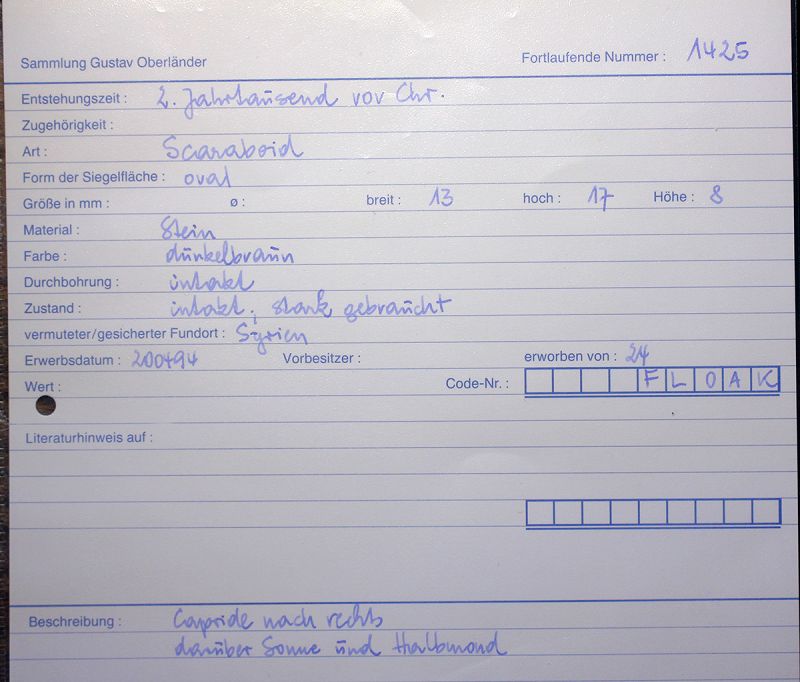 Sammlung Gustav Oberländer Fortlaufende Nummer : 1425
Entstehungszeit : 2. Jahrtausend vor Chr.
Zugehörigkeit :
Art : Scaraboid
Form der Siegelfläche : oval
Größe in mm : ø : breit : 13 hoch : 17 Höhe : 8
Material : Stein
Farbe : dunkelbraun
Durchbohrung : intakt
Zustand : intakt ; stark gebraucht
vermuteter/gesicherter Fundort : Syrien
Erwerbsdatum : 200494 Vorbesitzer : erworben von : 24
Wert : Code-Nr. : FLOAK
Literaturhinweis auf :
Beschreibung : Capride nach rechts
darüber Sonne und Halbmond